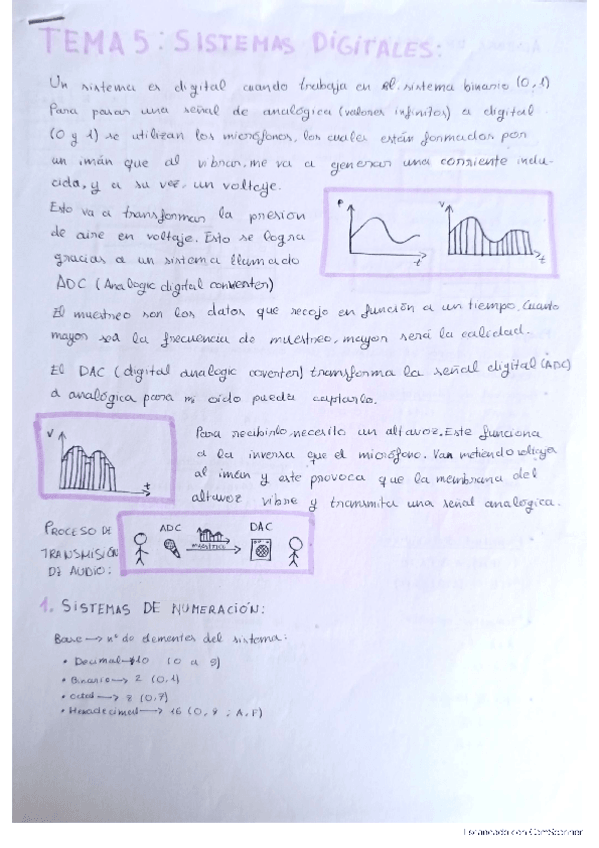 TEMA 5: SISTEMAS DIGITALES:
Un sistema es digital cuando trabaja en el sistema binario (0,1)
Para pasar una señal de analógica (valores infinitos) a digital
(0 y 1) se utilizan los micrófonos, los cuales están formados por
un imán que al vibrar, me va a generar una corriente indu-
cida, y a su vez, un voltaje.
Esto va a transformar la presión
de aire en voltaje. Esto se logra
gracias a un sistema llamado
ADC (Analogic digital converter)
P
t
V
t
El muestreo son los datos que recojo en función a un tiempo. Cuanto
mayor sea la frecuencia de muestreo, mayor será la calidad.
El DAC (digital analogic coverter) transforma la señal digital (ADC)
a analógica para mi oído pueda captarlo.
V
t
Para recibirlo, necesito un altavoz. Este funciona
a la inversa que el micrófono. Van metiendo voltaje
al imán y este provoca que la membrana del
altavoz vibre y transmita una señal analógica.
PROCESO DE
TRANSMISIÓN
DE AUDIO:
ADC
muestreo
DAC
1. SISTEMAS DE NUMERACIÓN:
Base → nº de elementos del sistema:
• Decimal → 10 (0 a 9)
• Binario → 2 (0,1)
• Octal → 8 (0,7)
• Hexadecimal → 16 (0,9 ; A,F)
Escaneado con CamScanner